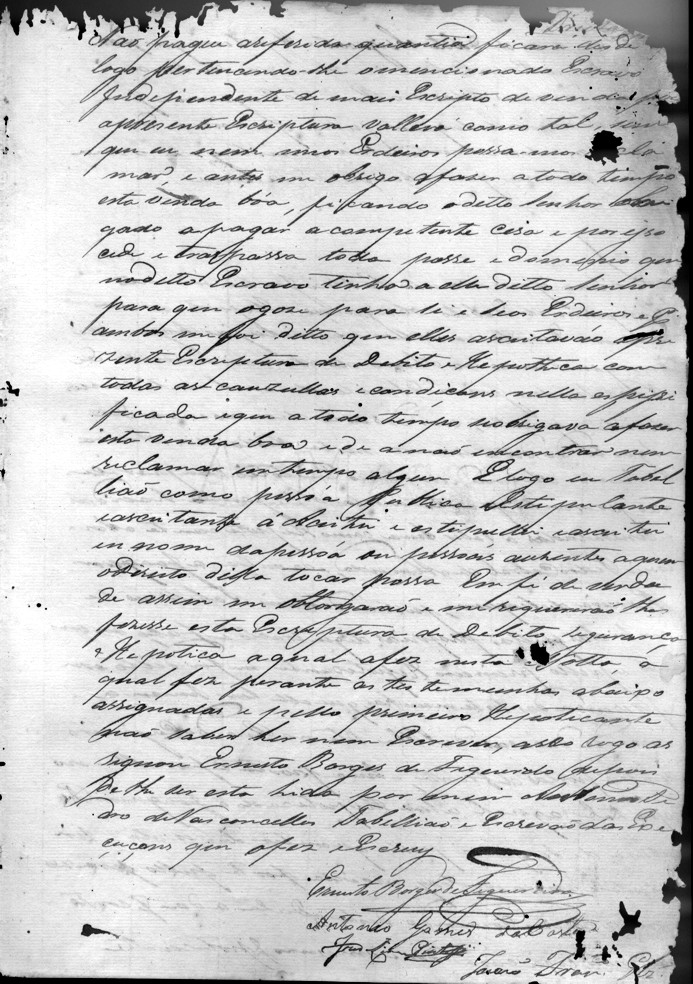 Não pague a referida quantia ficará desde
logo pertencendo-lhe o mencionado Escravo
Independente de mais Escripto de venda
apresente Escriptura vallerá como tal sem
que eu nem meus Erdeiros possamos
mar e antes me obrigo afazer atodo tempo
esta venda bôa, ficando oditto Senhor obri
gado apagar a competente cisa e por isso
cede e traspassa toda posse e dominio que
noditto Escravo tinha a elle ditto Senhor
para que ogoze para si e seos Erdeiros e
ambos me foi ditto que elles asceitavão apre
zente Escriptura de Debito e Hepotheca com
todas as cauzullas e condiçons nella espissi
ficada e que a todo tempo se obrigava afazer
esta venda boa e de a não encontrar nem
reclamar em tempo algum E logo eu Tabel
lião como pessôa Publica Estepulante
easceitante á asceitei e estipullei easceitei
em nome dapessôa ou pessoas auzentes aquem
odireito della tocar possa Em fé de verda
de assim me outorgarão e me requererão lhes
fizesse esta Escriptura de Debito, segurança
e Hepotica aqual afez nesta Notta, a
qual fez perante as testemunhas abaixo
assignadas e pello primeiro Hepoticante
não saber ler nem Escrever, aseo rogo as
signou Ernesto Borges de Figueredo depois
de lhe ser esta lida por mim
de Vasconcellos Tabellião e Escrevão das Exe
cuçons que afez e Escrevy
Ernesto Borges de Figueredo
Antonio Gomes da Costa
José
João Fran